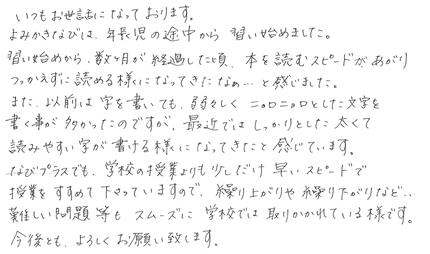 いつもお世話になっております。
よみかきなびは、年長児の途中から習い始めました。
習い始めから、数ヶ月が経過した頃、本を読むスピードがあがり
つっかえずに読める様になってきたなぁ…と感じました。
また、以前は字を書いても、弱々しくニョロニョロとした文字を
書く事が多かったのですが、最近ではしっかりとした太くて
読みやすい字が書ける様になってきたと感じています。
なびプラスでも、学校の授業よりも少しだけ早いスピードで
授業をすすめて下さっていますので、繰り上がりや繰り下がりなど…
難しい問題等もスムーズに学校では取りかかれている様です。
今後とも、よろしくお願い致します。